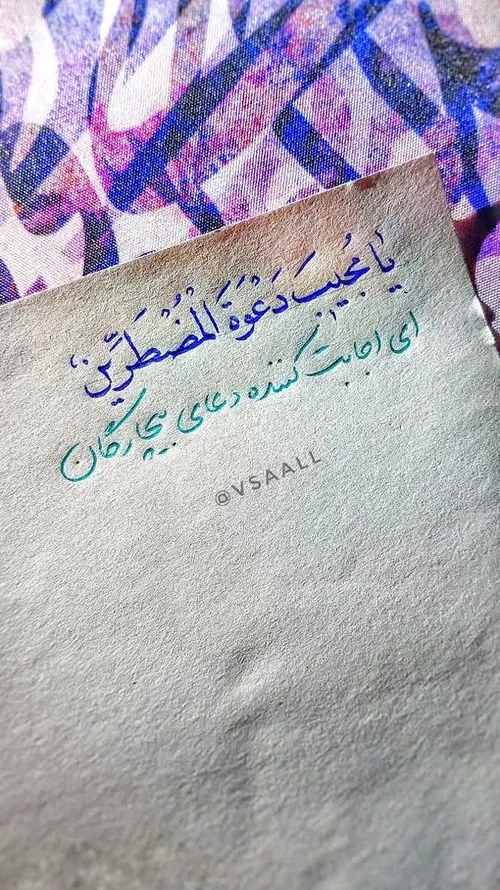 یا مُجیبَ دَعْوَةَ الْمُضْطَرّینَ
ای اجابت کننده دعای بیچارگان
@VSAALL